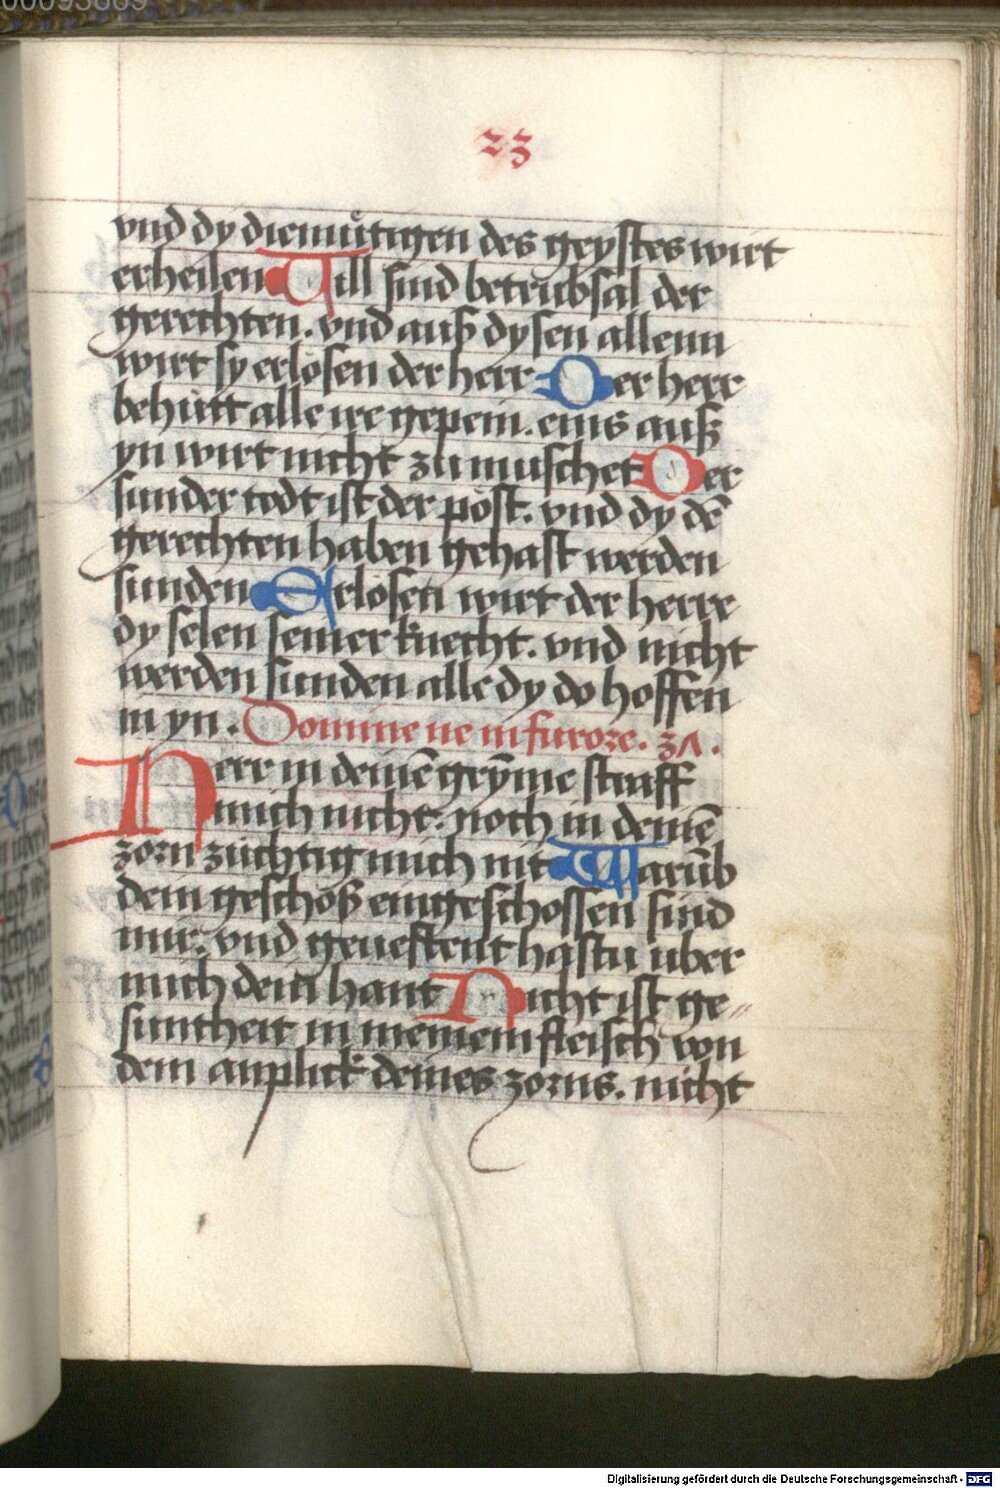 00093889
23
vnd dy diemuͤtigen des geystes wirt
erheilen All sind betrubsal der
gerechten. vnd auß dysen allenn
wirt sy erlösen der herr Der herr
behütt alle ire gepein. eins auß
yn wirt nicht zu muschet Der
sunder todt ist der pöst. vnd dy dē
gerechten haben gehast werden
sunden Erlosen wirt der herre
dy selen seiner knecht. vnd nicht
werden sunden alle dy do hoffen
in yn. Domine ne in furore. 37.
Herr in deinē grÿme straff
mich nicht. noch in deinē
zorn züchtig mich nit Warūb
dein geschöß eingeschossen sind
mir. vnd geuestent hastu uber
mich dein hant Nicht ist ge„
suntheit in meinem fleisch von
dem anplick deines zorns. nicht
Digitalisierung gefördert durch die Deutsche Forschungsgemeinschaft - DFG